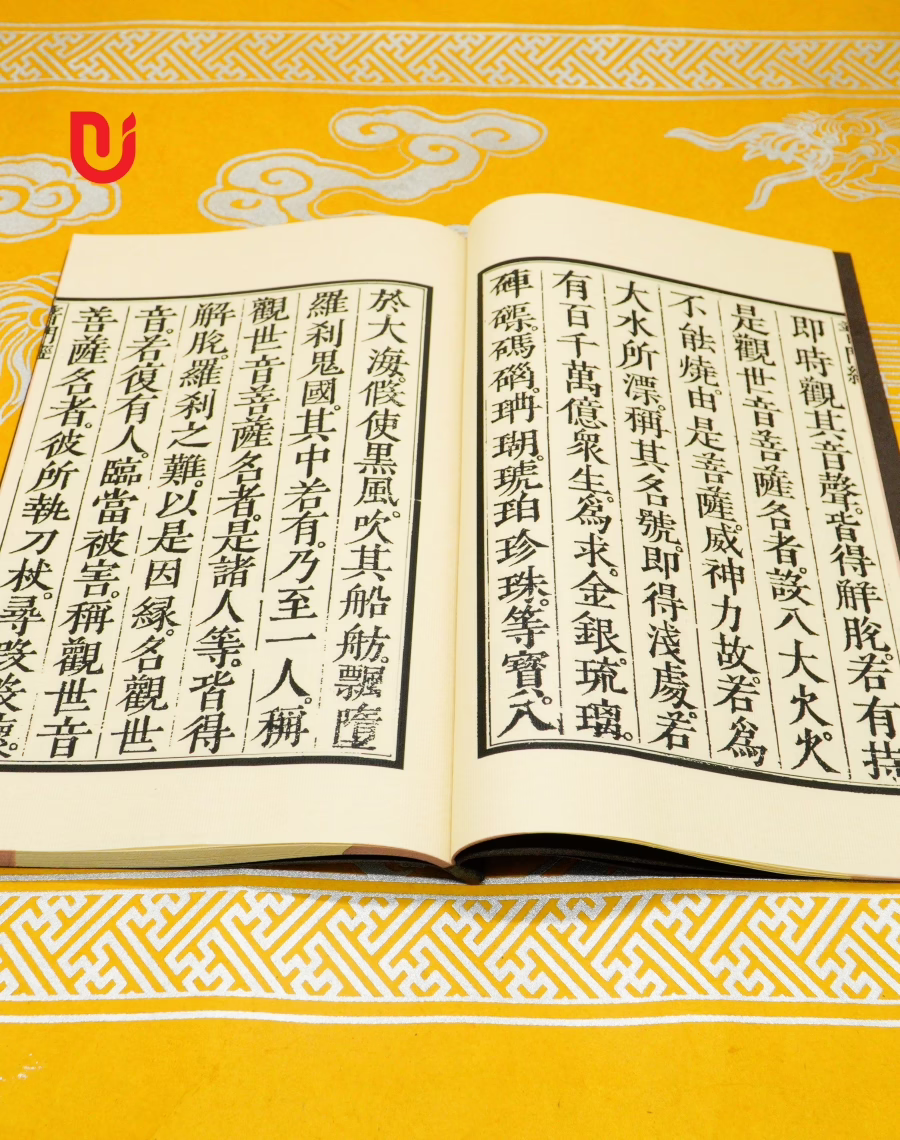 即時觀其音聲。皆得解脫。若有持
是觀世音菩薩名者。設入大火。火
不能燒。由是菩薩。威神力故。若爲
大水所漂。稱其名號。即得淺處。若
有百千萬億衆生。爲求。金銀。琉璃。
硨磲。碼碯。珊瑚。琥珀。珍珠。等寶。入
於大海。假使黑風。吹其船舫。飄墮
羅刹鬼國。其中若有。乃至一人。稱
觀世音菩薩名者。是諸人等。皆得
解脫。羅刹之難。以是因緣。名觀世
音。若復有人。臨當被害。稱觀世音
菩薩名者。彼所執刀杖。尋段段壞。